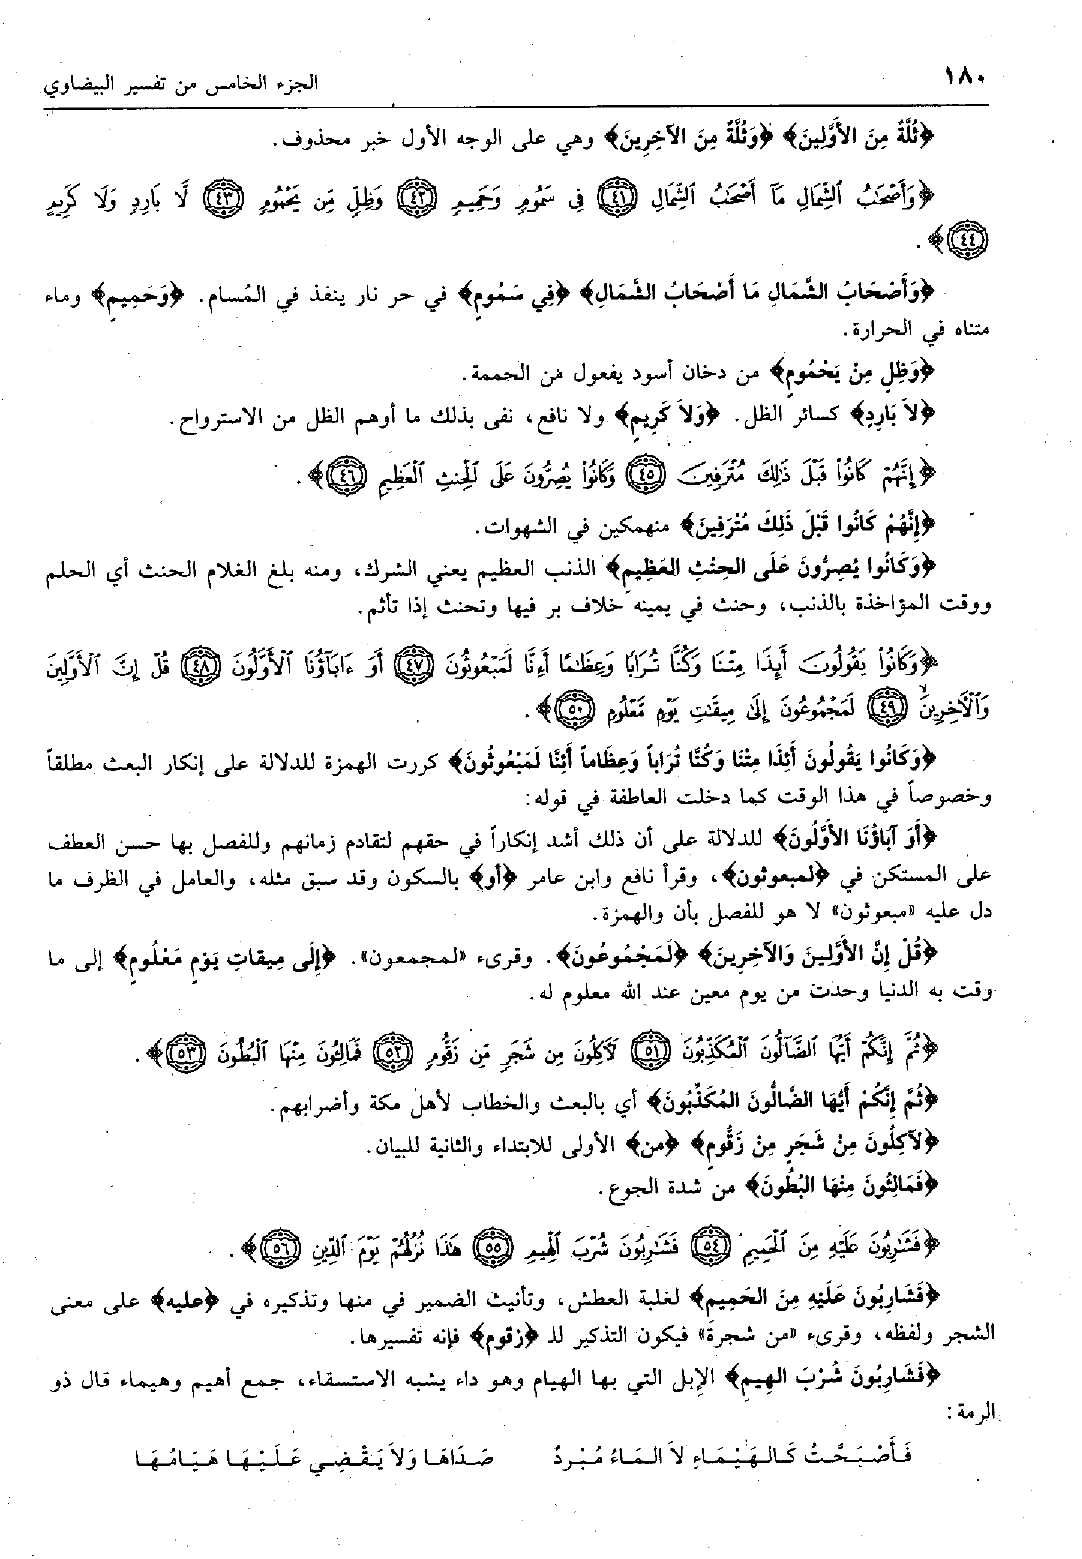 ١٨٠
الجزء الخامس من تفسير البيضاوي
﴿ثُلَّةٌ مِنَ الأَوَّلِينَ﴾ ﴿وَثُلَّةٌ مِنَ الآخِرِينَ﴾ وهي على الوجه الأول خبر محذوف.
﴿وَأَصْحَٰبُ ٱلشِّمَالِ مَآ أَصْحَٰبُ ٱلشِّمَالِ ﴿٤١﴾ فِى سَمُومٍ وَحَمِيمٍ ﴿٤٢﴾ وَظِلٍّ مِّن يَحْمُومٍ ﴿٤٣﴾ لَّا بَارِدٍ وَلَا كَرِيمٍ
﴿٤٤﴾﴾.
﴿وَأَصْحَابُ الشَّمَالِ مَا أَصْحَابُ الشَّمَالِ﴾ ﴿فِي سَمُومٍ﴾ في حر نار ينفذ في المسام. ﴿وَحَمِيمٍ﴾ وماء
متناه في الحرارة.
﴿وَظِلٍ مِنْ يَحْمُومٍ﴾ من دخان أسود يفعول من الحممة.
﴿لاَ بَارِدٍ﴾ كسائر الظل. ﴿وَلاَ كَرِيمٍ﴾ ولا نافع، نفى بذلك ما أوهم الظل من الاسترواح.
﴿إِنَّهُمْ كَانُوا۟ قَبْلَ ذَٰلِكَ مُتْرَفِينَ ﴿٤٥﴾ وَكَانُوا۟ يُصِرُّونَ عَلَى ٱلْحِنثِ ٱلْعَظِيمِ ﴿٤٦﴾﴾.
﴿إِنَّهُمْ كَانُوا قَبْلَ ذَلِكَ مُتْرَفِينَ﴾ منهمكين في الشهوات.
﴿وَكَانُوا يُصِرُّونَ عَلَى الحِنْثِ العَظِيمِ﴾ الذنب العظيم يعني الشرك، ومنه بلغ الغلام الحنث أي الحلم
ووقت المؤاخذة بالذنب، وحنث في يمينه خلاف بر فيها وتحنث إذا تأثم.
﴿وَكَانُوا۟ يَقُولُونَ أَئِذَا مِتْنَا وَكُنَّا تُرَابًا وَعِظَٰمًا أَءِنَّا لَمَبْعُوثُونَ ﴿٤٧﴾ أَوَ ءَابَآؤُنَا ٱلْأَوَّلُونَ ﴿٤٨﴾ قُلْ إِنَّ ٱلْأَوَّلِينَ
وَٱلْءَاخِرِينَ ﴿٤٩﴾ لَمَجْمُوعُونَ إِلَىٰ مِيقَٰتِ يَوْمٍ مَّعْلُومٍ ﴿٥٠﴾﴾.
﴿وَكَانُوا يَقُولُونَ أَئِذَا مِتْنَا وَكُنَّا تُرَاباً وَعِظَاماً أَئِنَّا لَمَبْعُوثُونَ﴾ كررت الهمزة للدلالة على إنكار البعث مطلقاً
وخصوصاً في هذا الوقت كما دخلت العاطفة في قوله:
﴿أَوَ آبَاؤُنَا الأَوَّلُونَ﴾ للدلالة على أن ذلك أشد إنكاراً في حقهم لتقادم زمانهم وللفصل بها حسن العطف
على المستكن في ﴿لمبعوثون﴾، وقرأ نافع وابن عامر ﴿أو﴾ بالسكون وقد سبق مثله، والعامل في الظرف ما
دل عليه «مبعوثون» لا هو للفصل بأن والهمزة.
﴿قُلْ إِنَّ الأَوَّلِينَ وَالآخِرِينَ﴾ ﴿لَمَجْمُوعُونَ﴾. وقرىء «لمجمعون». ﴿إِلَى مِيقَاتِ يَوْمٍ مَعْلُومٍ﴾ إلى ما
وقت به الدنيا وحدت من يوم معين عند الله معلوم له.
﴿ثُمَّ إِنَّكُمْ أَيُّهَا ٱلضَّآلُّونَ ٱلْمُكَذِّبُونَ ﴿٥١﴾ لَآكِلُونَ مِن شَجَرٍ مِّن زَقُّومٍ ﴿٥٢﴾ فَمَالِـُٔونَ مِنْهَا ٱلْبُطُونَ ﴿٥٣﴾﴾.
﴿ثُمَّ إِنَّكُمْ أَيُّهَا الضَّالُّونَ المُكَذِّبُونَ﴾ أي بالبعث والخطاب لأهل مكة وأضرابهم.
﴿لآكِلُونَ مِنْ شَجَرٍ مِنْ زَقُّومٍ﴾ ﴿من﴾ الأولى للابتداء والثانية للبيان.
﴿فَمَالِئُونَ مِنْهَا البُطُونَ﴾ من شدة الجوع.
﴿فَشَٰرِبُونَ عَلَيْهِ مِنَ ٱلْحَمِيمِ ﴿٥٤﴾ فَشَٰرِبُونَ شُرْبَ ٱلْهِيمِ ﴿٥٥﴾ هَٰذَا نُزُلُهُمْ يَوْمَ ٱلدِّينِ ﴿٥٦﴾﴾.
﴿فَشَارِبُونَ عَلَيْهِ مِنَ الحَمِيمِ﴾ لغلبة العطش، وتأنيث الضمير في منها وتذكيره في ﴿عليه﴾ على معنى
الشجر ولفظه، وقرىء «من شجرة» فيكون التذكير لـ ﴿زقوم﴾ فإنه تفسيرها.
﴿فَشَارِبُونَ شُرْبَ الهِيمِ﴾ الإبل التي بها الهيام وهو داء يشبه الاستسقاء، جمع أهيم وهيماء قال ذو
الرمة:
فَأَصْبَحْتُ كَالهَيْمَاءِ لاَ المَاءُ مُبْرِدٌ صَدَاهَا وَلاَ يَقْضِي عَلَيْهَا هَيَامُهَا